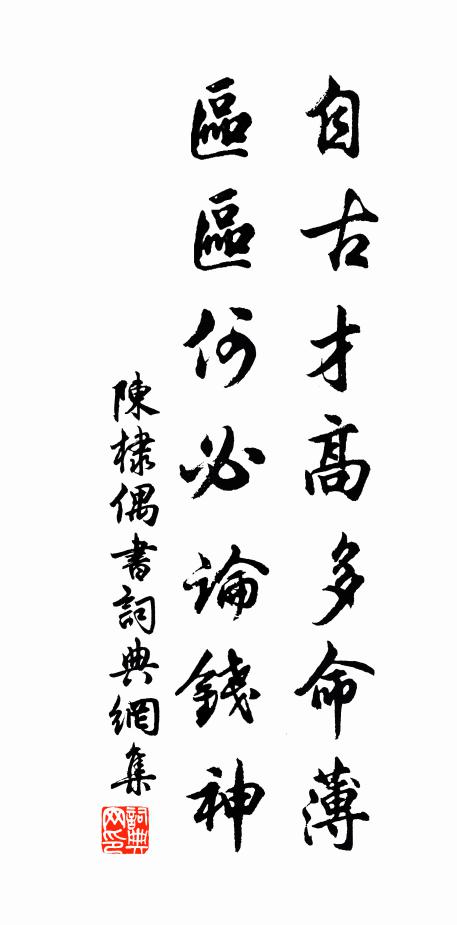 自古才高多命薄
區區何必論錢神
陳棣偶書詞典網集
詞典網印